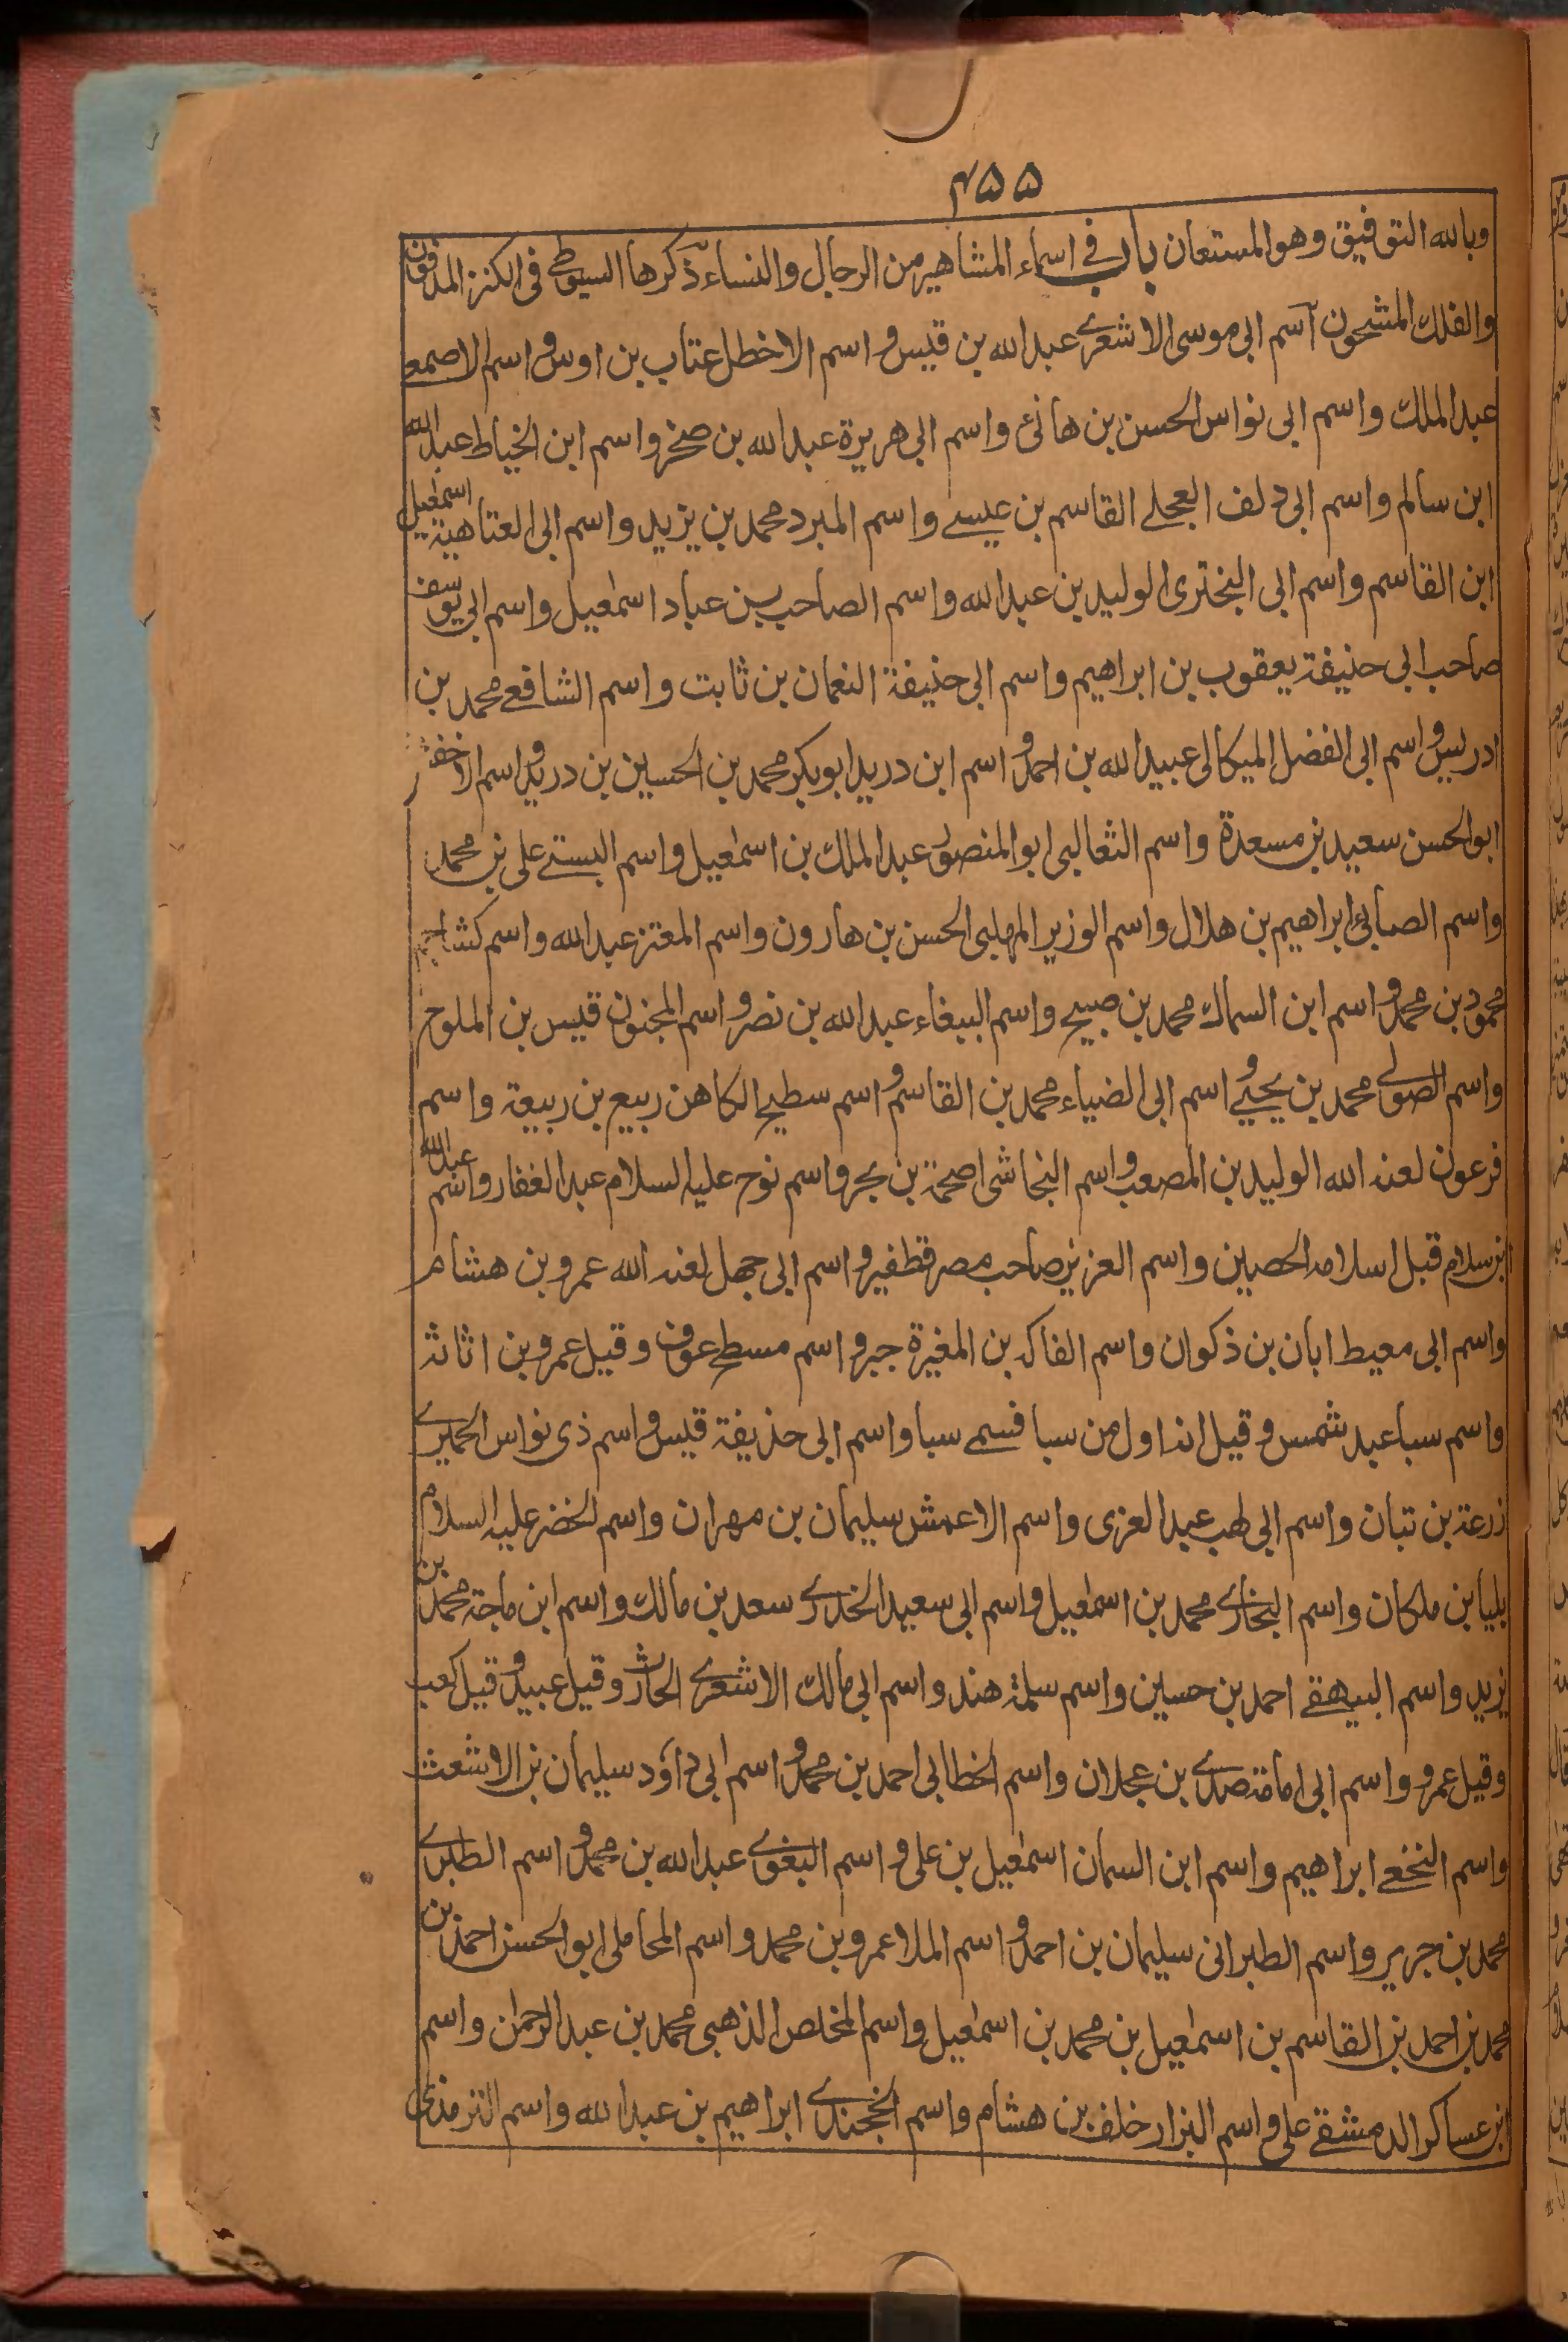 ۴۵۵
وبالله التوفيق وهو المستعان باب في اسماء المشاهير من الرجال والنساء ذكرها السيوطي في الكنز المدفون
والفلك المشحون آسم ابي موسى الاشعرے عبد الله بن قيس و اسم الاخطل عتاب بن اوس و اسم الاصمعے
عبد الملك واسم ابى نواس الحسن بن هانئ واسم ابى هريرة عبد الله بن صخر واسم ابن الخياط عبد الله
ابن سالم واسم ابى دلف العجلے القاسم بن عيسے واسم المبرد محمد بن يزيد واسم ابى العتاهية اسمٰعيل
ابن القاسم واسم ابى البخترى الوليد بن عبد الله واسم الصاحب بن عباد اسمٰعيل واسم ابي يوسف
صاحب ابى حنيفة يعقوب بن ابراهيم واسم ابى حنيفة النعمان بن ثابت واسم الشافعے محمد بن
ادريس و اسم ابى الفضل الميكالى عبيد الله بن احمد و اسم ابن دريد ابو بكر محمد بن الحسين بن دريد و اسم الاخفش
ابو الحسن سعيد بن مسعدة واسم الثعالبى ابو المنصور عبد الملك بن اسمٰعيل واسم البستے على بن محمد
واسم الصابئ ابراهيم بن هلال واسم الوزير المهلبى الحسن بن هارون واسم المعتز عبد الله واسم كشاجم
محمود بن محمد و اسم ابن السماك محمد بن صبيح واسم الببغاء عبد الله بن نصر و اسم المجنون قيس بن الملوح
واسم الصولے محمد بن يحيے و اسم ابى الضياء محمد بن القاسم و اسم سطيح الكاهن ربيع بن ربيعة واسم
فرعون لعنه الله الوليد بن المصعب و اسم النجاشى اصحمة بن بحر واسم نوح عليه السلام عبد الغفار واسم عبد الله
ابن سلام قبل اسلامه الحصين واسم العزيز صاحب مصر قطفير و اسم ابى جهل لعنه الله عمرو بن هشام
واسم ابى معيط ابان بن ذكوان واسم الفاكه بن المغيرة جبر و اسم مسطح عوف وقيل عمرو بن اثاثة
واسم سبا عبد شمس وقيل انه اول من سبا فسمے سبا واسم ابى حذيفة قيس و اسم ذى نواس الحميرے
زرعة بن تبان واسم ابى لهب عبد العزى واسم الاعمش سليمان بن مهران واسم الخضر عليه السلام
بليا بن ملكان واسم البخارے محمد بن اسمٰعيل واسم ابى سعيد الخدرے سعد بن مالك واسم ابن ماجة محمد بن
يزيد واسم البيهقے احمد بن حسين واسم سلمة هند واسم ابى مالك الاشعرے الحارث وقيل عبيد و قيل كعب
وقيل عمرو واسم ابى امامة صدے بن عجلان واسم الخطابى احمد بن محمد و اسم ابى داؤد سليمان بن الاشعث
واسم النخعے ابراهيم واسم ابن السمان اسمٰعيل بن على و اسم البغوے عبد الله بن محمد و اسم الطبرے
محمد بن جرير واسم الطبرانى سليمان بن احمد و اسم الملا عمرو بن محمد واسم المحاملى ابو الحسن احمد بن
محمد بن احمد بن القاسم بن اسمٰعيل بن محمد بن اسمٰعيل واسم المخلص الذهبى محمد بن عبد الرحمٰن واسم
ابن عساكر الدمشقے على و اسم البزار خلف بن هشام واسم الخجندے ابراهيم بن عبد الله واسم الترمذى